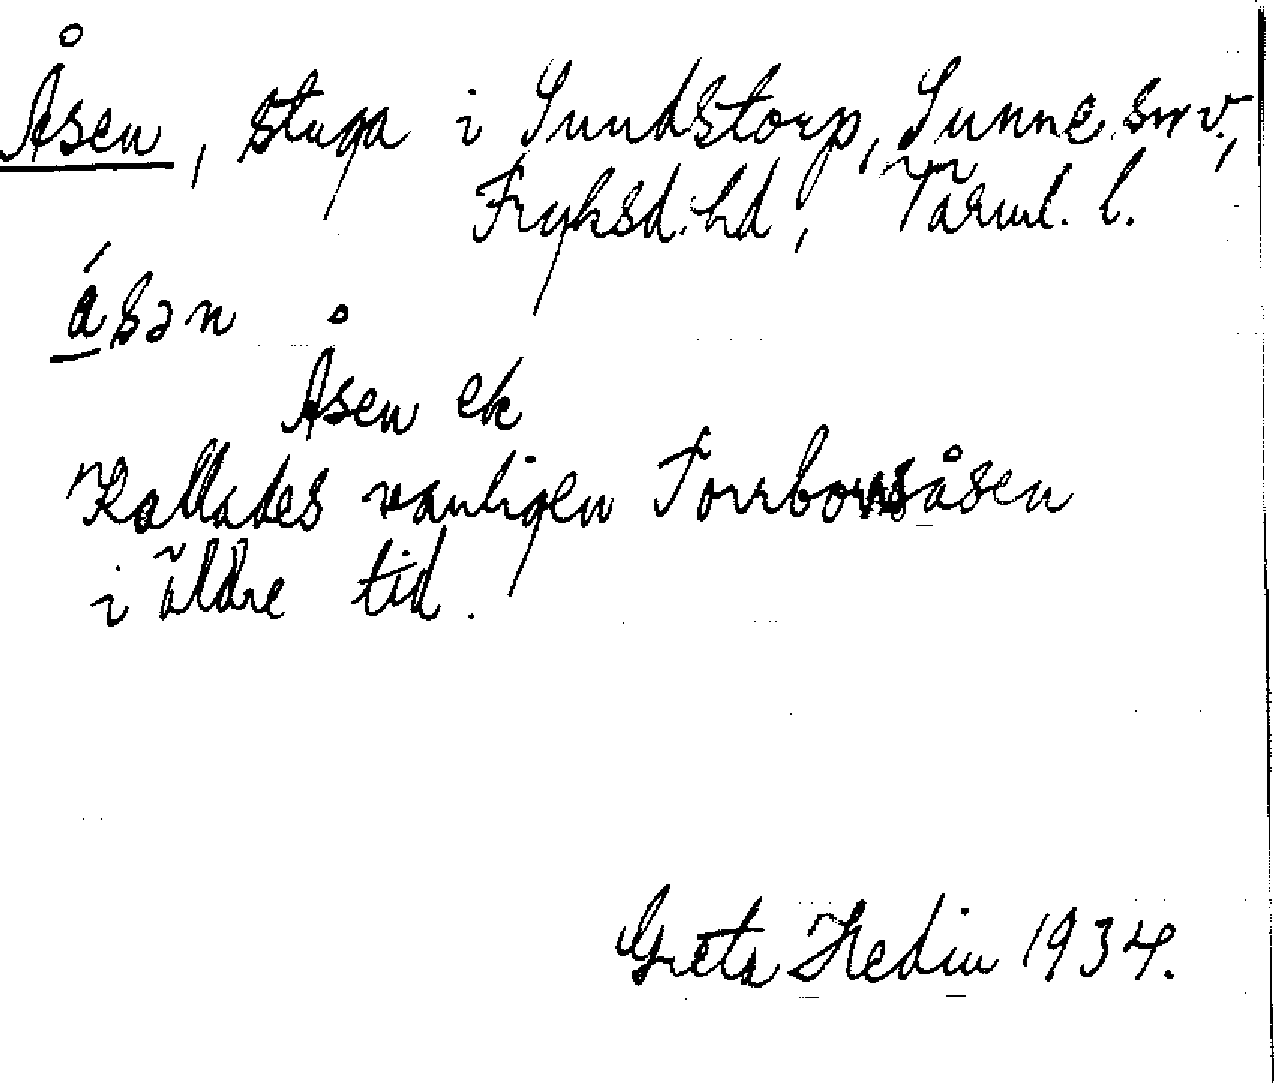 Åsen, stuga i Sundstorp, Sunne snv,
Fryksd. hd, Värml. l.
åsən
Åsen ek
Kallades vanligen Torrbonsåsen
i äldre tid.
Greta Hedin 1934.